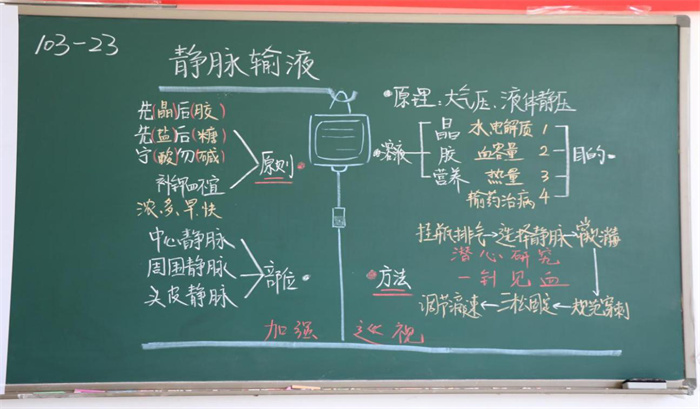 103-23
静脉输液
先(晶)后(胶)
先(盐)后(糖)
宁(酸)勿(碱)
补钾四不宜
浓、多、早、快
原则
中心静脉
周围静脉
头皮静脉
部位
原理:大气压、液体静压
溶液
晶 水电解质 1
胶 血容量 2
营养 热量 3
输药治病 4
目的
方法
挂瓶排气→选择静脉→
潜心研究
一针见血
调节滴速←二松固定←规范穿刺
加强巡视